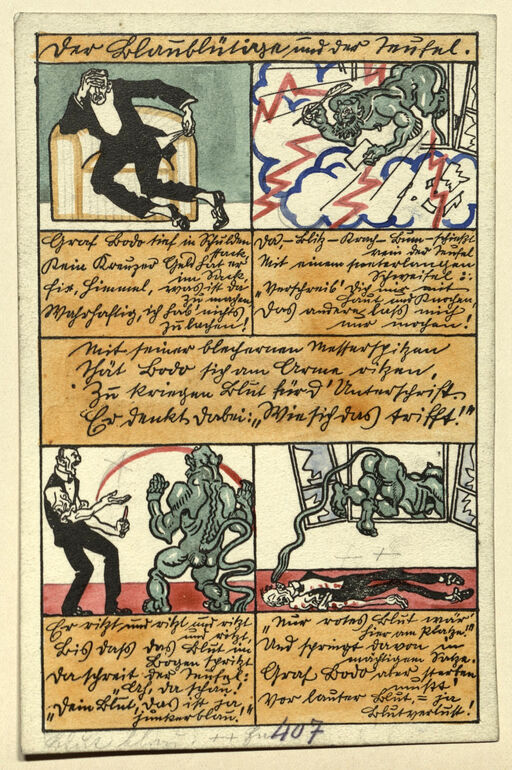 Der Blaublütige und der Teufel.
Graf Bodo tief in Schulden
stack,
Kein Kreuzer Geld hat er
im Sack.
Fix, Himmel, was ist da
zu machen
Wahrhaftig, ich hab nichts
zu lachen!
Da – Blitz – Krach – Bum – schießt
rein der Teufel
Mit einem meterlangen
Schweifel:
"Verschreib' Dich mir mit
Haut und Knochen,
Das andere lass mich
nur machen!
Mit seiner blechernen Messerspitzen
Thät Bodo sich am Arme ritzen,
Zu kriegen Blut für d'Unterschrift.
Er denkt dabei: „Wie sich das trifft!"
Er ritzt und ritzt und ritzt
und ritzt,
Bis dass das Blut im
Bogen spritzt
Da schreit der Teufel:
"Ah, da schau!
"Dein Blut, das ist ja
junkerblau!"
"Nur rotes Blut wär'
hier am Platze!"
Und springt davon in
mächtigem Satze.
Graf Bodo aber sterben
musst'
Vor lauter Blut, – ja
Blutverlust!
407